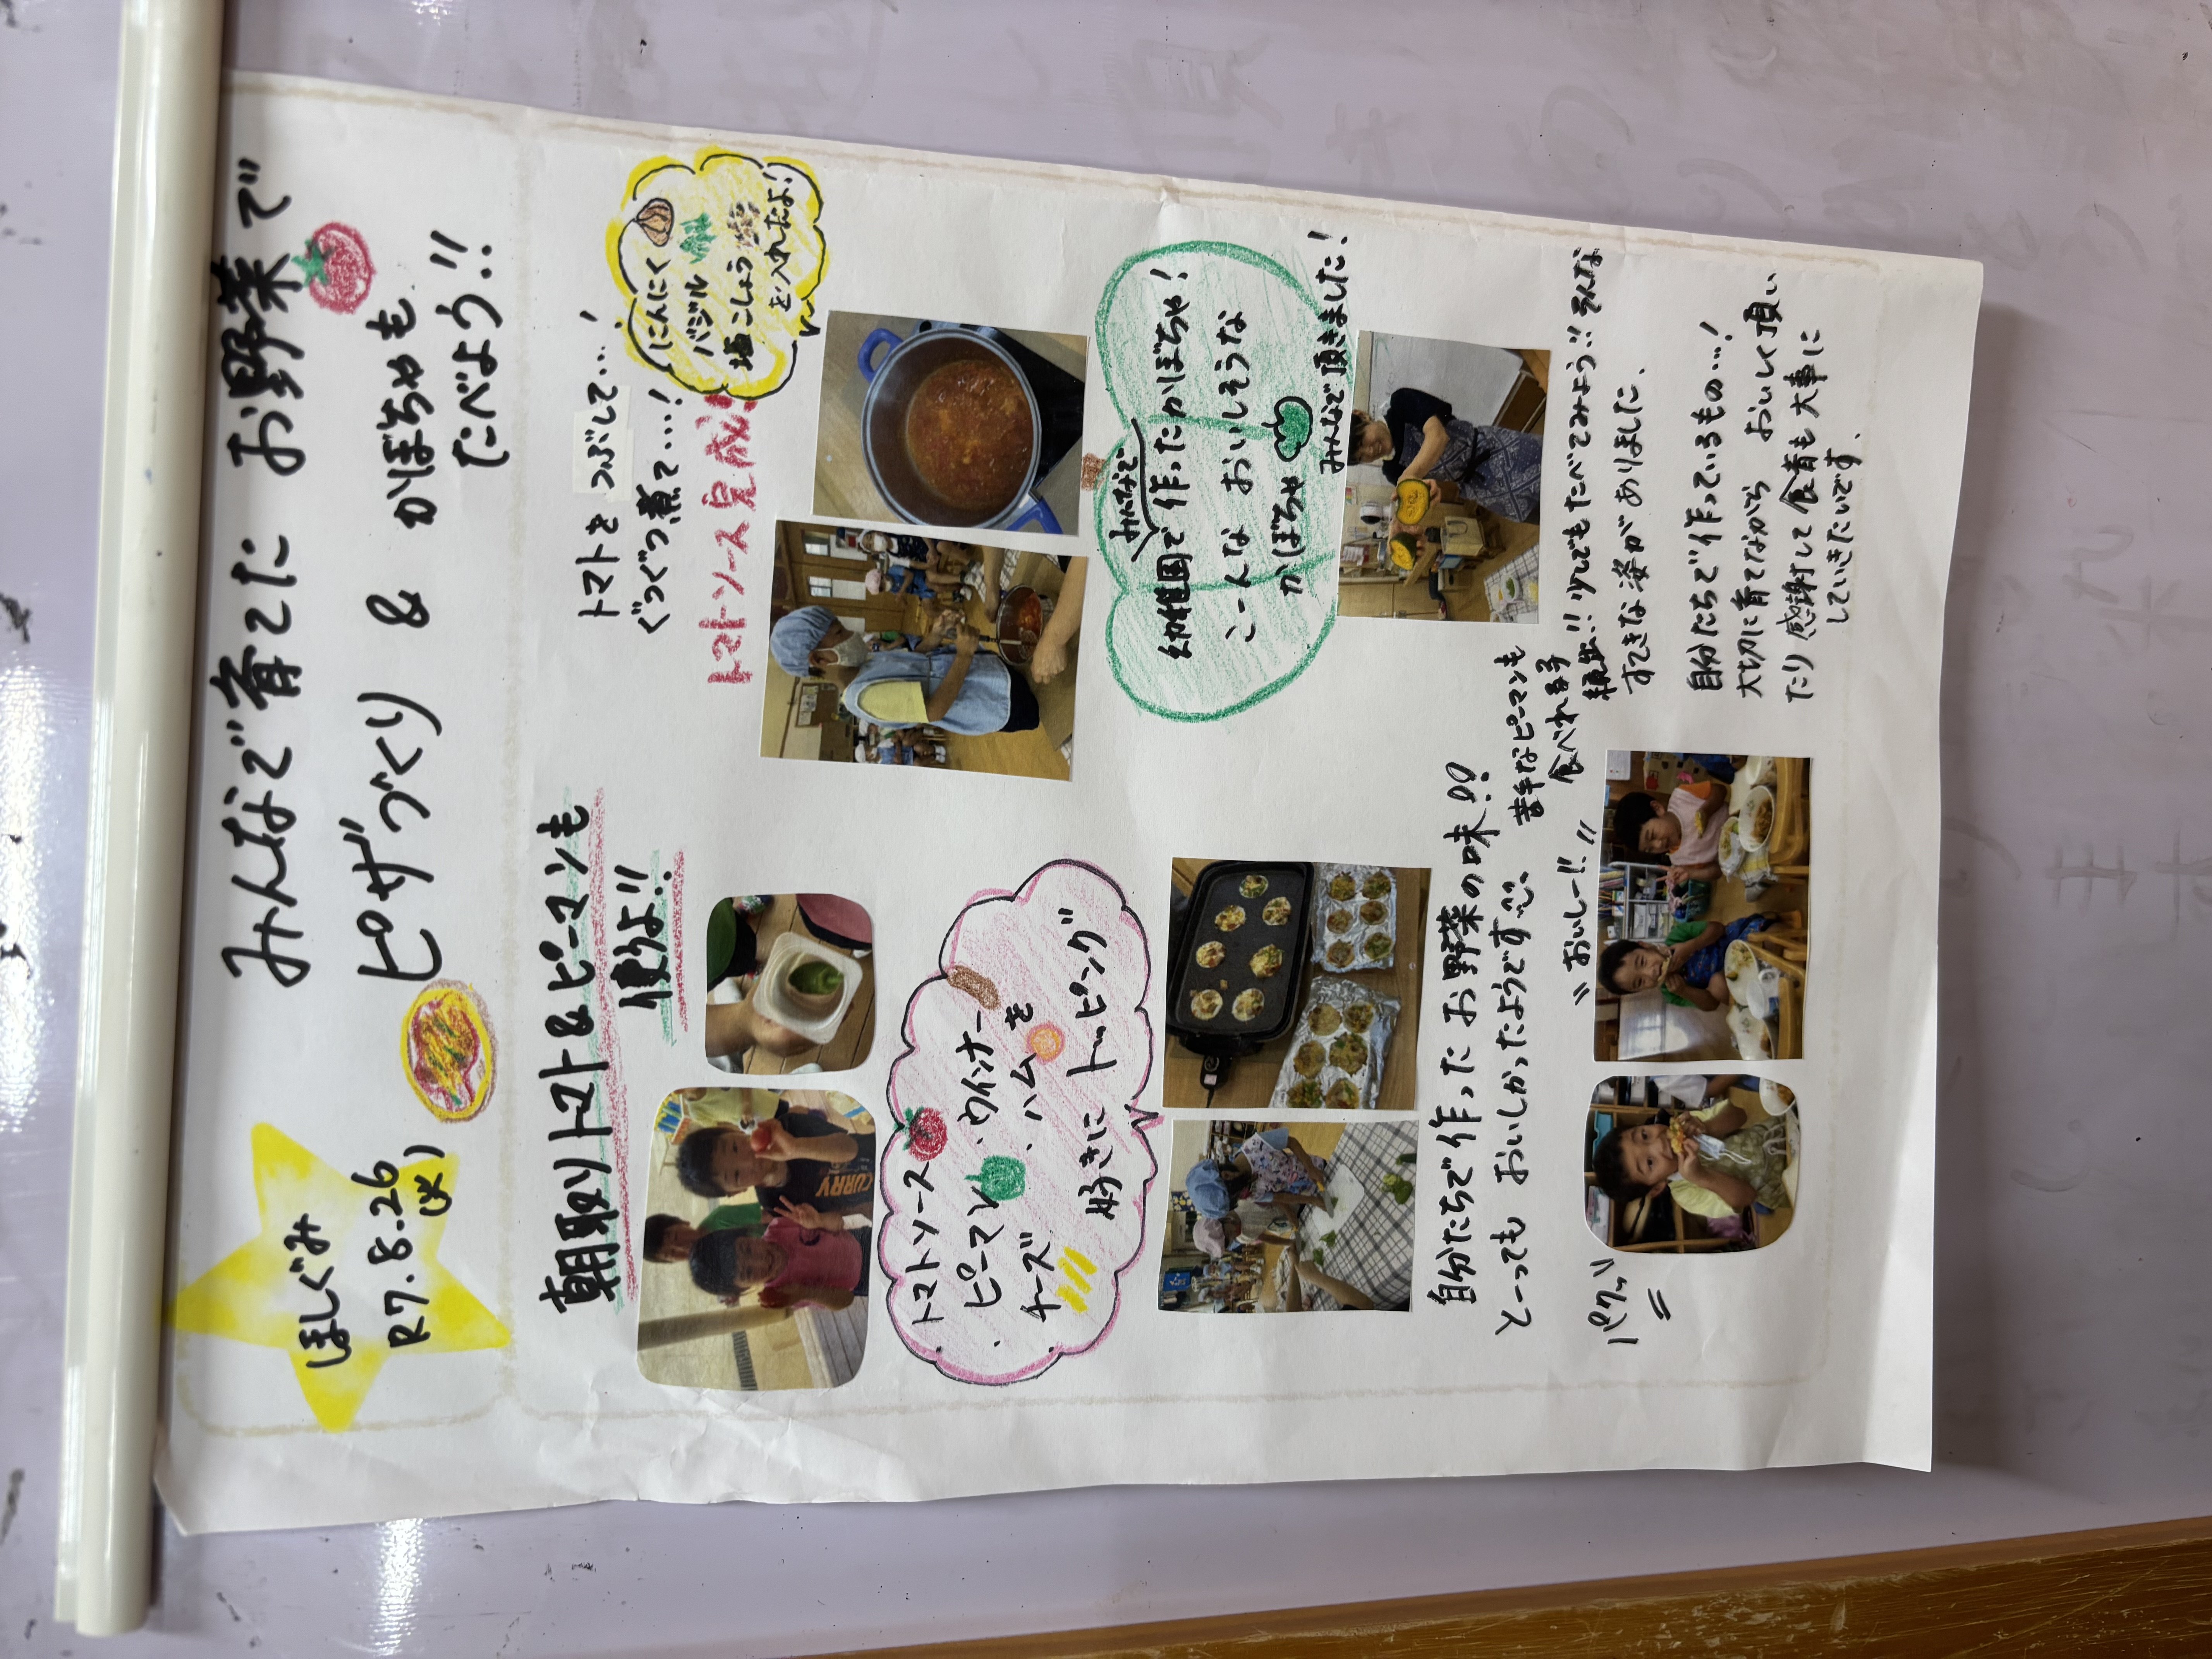 ほしぐみ
R7.8.26
(火)
みんなで育てた お野菜で
ピザづくり & かぼちゃも
たべよう!!
朝取りトマト&ピーマンも
使うよ!!
トマトを つぶして…!
ぐつぐつ煮て…!
トマトソース完成!
にんにく
バジル
塩こしょう
を入れたよ!
・トマトソース
・ピーマン ・ウインナー
・チーズ ・ハムを
好きに トッピング
みんなで
幼稚園で作ったかぼちゃ!
こーんな おいしそうな
かぼちゃ
みんなで頂きました!
自分たちで作った お野菜の味!!
とーっても おいしかったようです
苦手なピーマンも
食べれる子
続出!! 少しでもたべてみよう!! そんな
すてきな姿がありました、
パクッ
おいしー!!
自分たちで作っているもの…!
大切に育てながら おいしく頂い
たり 感謝して 食育も大事に
していきたいです、
CURRY